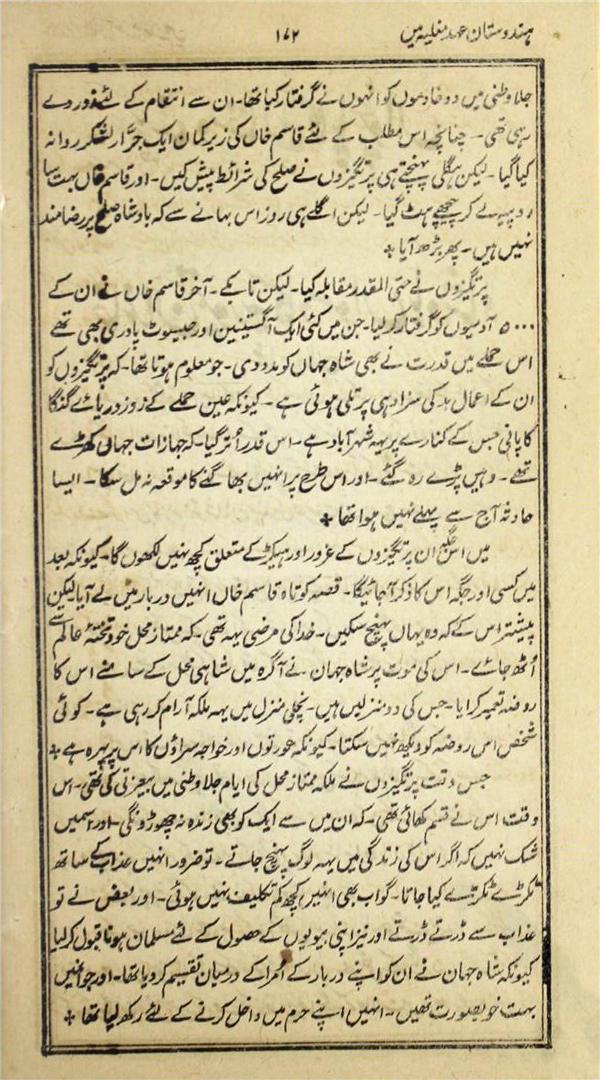 ہندوستان عہد مغلیہ میں ۱۷۲
جلاوطنی میں دو خادموں کو انہوں نے گرفتار کیا تھا۔ ان سے انتقام کے لئے زور دے
رہی تھی۔ چنانچہ اس مطلب کے لئے قاسم خاں کی زیر کمان ایک جرّار لشکر روانہ
کیا گیا۔ لیکن ہگلی پہنچتے ہی پرتگیزوں نے صلح کی شرائط پیش کیں۔ اور قاسم خاں بہت سا
روپیہ لے کر پیچھے ہٹ گیا۔ لیکن اگلے ہی روز اس بہانے سے کہ بادشاہ صلح پر رضامند
نہیں ہیں۔ پھر بڑھ آیا ٭
پرتگیزوں نے حتی المقدر مقابلہ کیا۔ لیکن تابکے۔ آخر قاسم خاں نے ان کے
۵۰۰۰ آدمیوں کو گرفتار کر لیا۔ جن میں کئی ایک آگسٹینین اور جیسوٹ پادری بھی تھے
اس حملے میں قدرت نے بھی شاہ جہاں کو مدد دی۔ جو معلوم ہوتا تھا۔ کہ پرتگیزوں کو
ان کے اعمال بد کی سزا دہی پر تلی ہوئی ہے۔ کیونکہ عین حملے کے روز دریائے گنگا
کا پانی جس کے کنارے پر یہہ شہر آباد ہے۔ اس قدر اُتر گیا۔ کہ جہازات جہاں کھڑے
تھے۔ وہیں پڑے رہ گئے۔ اور اس طرح پر انہیں بھاگنے کا موقعہ نہ مل سکا۔ ایسا
حادثہ آج سے پہلے نہیں ہوا تھا ٭
میں اس جگہ ان پرتگیزوں کے غرور اور ہیکڑ کے متعلق کچھ نہیں لکھوں گا۔ کیونکہ بعد
میں کسی اور جگہ اس کا ذکر آ جائیگا۔ قصہ کوتاہ قاسم خاں انہیں دربار میں لے آیا لیکن
پیشتر اس کے کہ وہ یہاں پہنچ سکیں۔ خدا کی مرضی یہہ تھی۔ کہ ممتاز محل خود تختۂ عالم سے
اُٹھ جائے۔ اس کی موت پر شاہ جہان نے آگرہ میں شاہی محل کے سامنے اس کا
روضہ تعمیر کرایا۔ جس کی دو منزلیں ہیں۔ نچلی منزل میں یہہ ملکہ آرام کر رہی ہے۔ کوئی
شخص اس روضہ کو دیکھ نہیں سکتا۔ کیونکہ عورتوں اور خواجہ سراؤں کا اس پر پہرہ ہے ٭
جس وقت پرتگیزوں نے ملکہ ممتاز محل کی ایام جلاوطنی میں بیعزتی کی تھی۔ اس
وقت اس نے قسم کھائی تھی۔ کہ ان میں سے ایک کو بھی زندہ نہ چھوڑونگی۔ اور اسمیں
شک نہیں کہ اگر اس کی زندگی میں یہہ لوگ پہنچ جاتے۔ تو ضرور انہیں عذاب کے ساتھ
ٹکڑے ٹکڑے کیا جاتا۔ گو اب بھی انہیں کچھ کم تکلیف نہیں ہوئی۔ اور بعض نے تو
عذاب سے ڈرتے ڈرتے اور نیز اپنی بیویوں کے حصول کے لئے مسلمان ہونا قبول کر لیا
کیونکہ شاہ جہان نے ان کو اپنے دربار کے اُمرا کے درمیان تقسیم کر دیا تھا۔ اور جو انہیں
بہت خوبصورت تھیں۔ انہیں اپنے حرم میں داخل کرنے کے لئے رکھ لیا تھا ٭